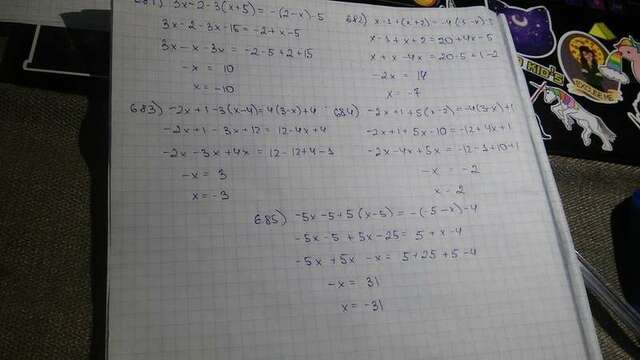 681) 3x-2-3(x+5)=-(2-x)-5
3x-2-3x-15=-2+x-5
3x-x-3x=-2-5+2+15
-x = 10
x=-10
682) x-1+(x+2)=-4(-5-x)-5
x-1+x+2=20+4x-5
x+x-4x=20-5+1-2
-2x = 14
x = -7
683) -2x+1-3(x-4)=4(3-x)+4
-2x+1-3x+12=12-4x+4
-2x-3x+4x=12-12+4-1
-x = 3
x = -3
684) -2x+1+5(x-2)=-4(3-x)+1
-2x+1+5x-10=-12+4x+1
-2x-4x+5x=-12-1+10+1
-x = -2
x = 2
685) -5x-5+5(x-5)=-(-5-x)-4
-5x-5+5x-25=5+x-4
-5x+5x-x=5+25+5-4
-x = 31
x = -31
EXCUSE ME